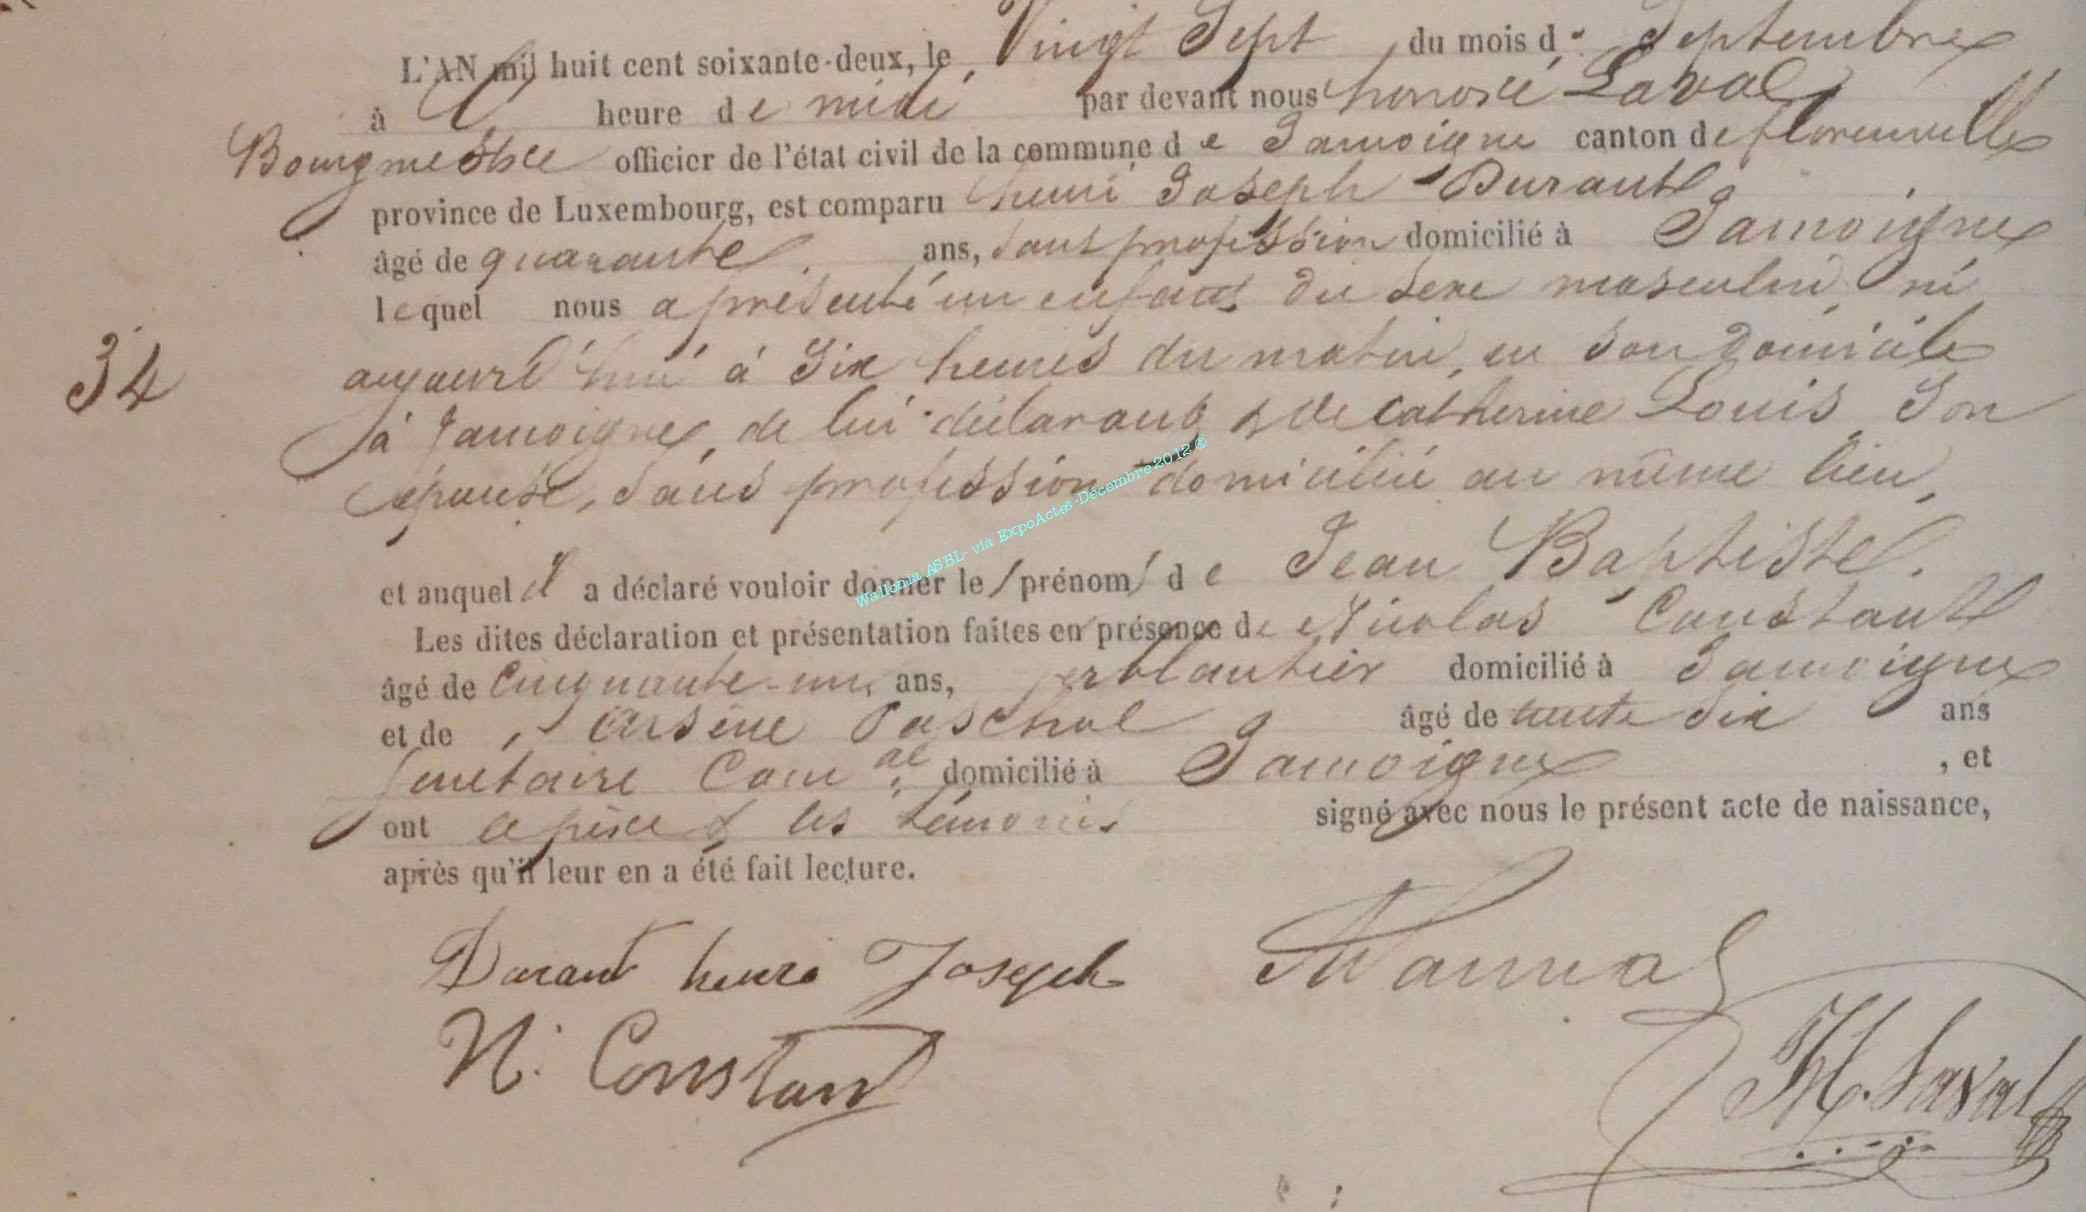 L'AN mil huit cent soixante-deux, le Vingt Sept du mois de Septembre
à heure de midi par devant nous honoré Laval
Bourgmestre officier de l'état civil de la commune de Jamoigne canton de florenville
province de Luxembourg, est comparu henri Joseph Durant
âgé de quarante ans, sans profession domicilié à Jamoigne
lequel nous a présenté un enfant du sexe masculin, né
aujourd'hui à Six heures du matin, en son domicile
à Jamoigne, de lui déclarant & de Catherine Louis Son
épouse, sans profession domicilié au même lieu,
et auquel il a déclaré vouloir donner le prénom de Jean Baptiste.
Les dites déclaration et présentation faites en présence de Nicolas Constant
âgé de Cinquante-un ans, ferblantier domicilié à Jamoigne
34
et de Arsène Paschal âgé de trente Six ans
Secretaire Com.al domicilié à Jamoigne, et
ont le père & les témoins signé avec nous le présent acte de naissance,
après qu'il leur en a été fait lecture.
Durant henri Joseph
N. Constant
H. Laval
Wallonia ASBL- via ExpoActes-Décembre 2012 ©